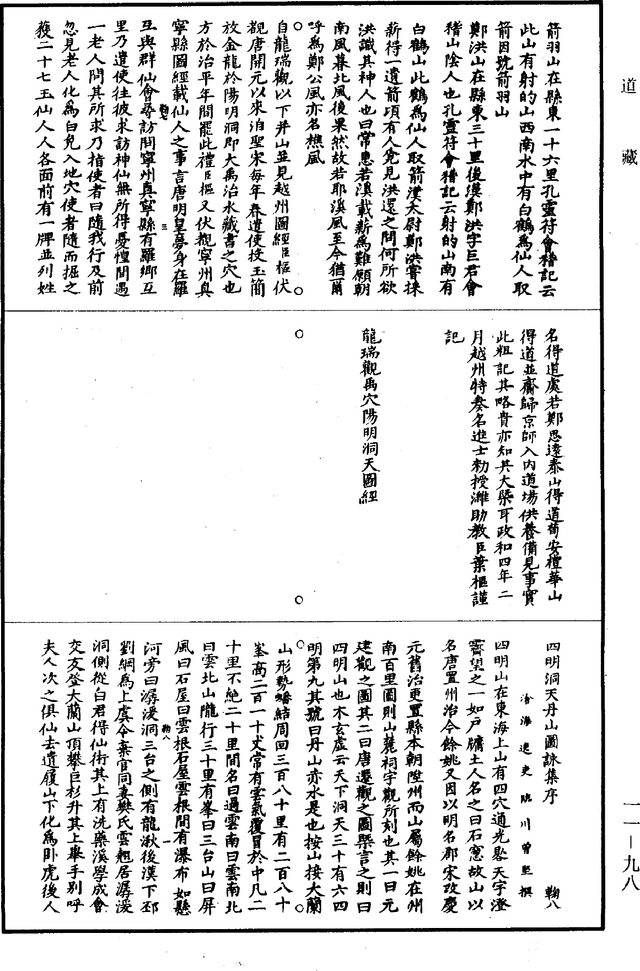 道藏
箭羽山在縣東一十六里孔靈符會稽記云
此山有射的山西南水中有白鶴為仙人取
箭因號箭羽山
鄭洪山在縣東三十里後漢鄭洪字巨君會
稽山陰人也孔靈符會稽記云射的山南有
白鶴山此鶴為仙人取箭漢太尉鄭洪嘗採
薪得一遺箭頃有人覓見洪還之問何所欲
洪識其神人也曰常患若溪載薪為難願朝
南風暮北風後果然故若耶溪風至今猶爾
呼為鄭公風亦名樵風
自龍瑞觀以下并山並見越州圖經臣樞伏
覩唐開元以來洎聖宋每年春遣使投玉簡
放金龍於陽明洞即大禹治水藏書之穴也
方於治平年間罷此禮臣樞又伏觀寧州真
寧縣圖經載仙人之事言唐明皇夢身在羅
互與群仙會尋訪問寧州真寧縣有羅鄉互
里乃遣使往彼求訪神仙無所得憂惶間遇
一老人問其所求乃指使者曰隨我行及前
忽見老人化為白兔入地穴使者隨而掘之
獲二十七玉仙人人各面前有一牌並列姓
名得道處若鄭思遠泰山得道荀安禮華山
得道並齋歸京師入內道場供養備見事實
此粗記其略貴亦知其大槩耳政和四年二
月越州特奏名進士勑授濰助教臣葉樞謹
記
龍瑞觀禹穴陽明洞天圖經
四明洞天丹山圖詠集序 鞠八
滄海逸吏臨川曾堅撰
四明山在東海上山有四穴通光㬌天宇澄
霽望之一如戶牖土人名之曰石窻故山以
名唐置州治今餘姚又因以明名郡宋改慶
元舊治更置縣本朝陞州而山屬餘姚在州
南百里圖則山麓祠宇觀所刻也其一曰元
建觀之圖其二曰唐遷觀之圖槩言之則曰
四明山也木玄虛云天下洞天三十有六四
明第九其號曰丹山赤水是也按山接大蘭
山形勢蟠結周回三百八十里有二百八十
峯高二百一十丈常有雲氣覆冒於中凡二
十里不絕二十里間名曰過雲南曰雲南北
曰雲北山隴行三十里有峯曰三台山曰屏
風曰石屋曰雲根石屋雲根間有瀑布如懸
河旁曰潺湲洞三台之側有龍湫後漢下邳
劉綱為上虞令棄官同妻樊氏雲翹居潺湲
洞側從白君得仙術其上有洗藥溪學成會
交友登大蘭山頂攀巨杉升其上舉手別呼
夫人次之俱仙去遺履山下化為臥虎後人
一一—九八